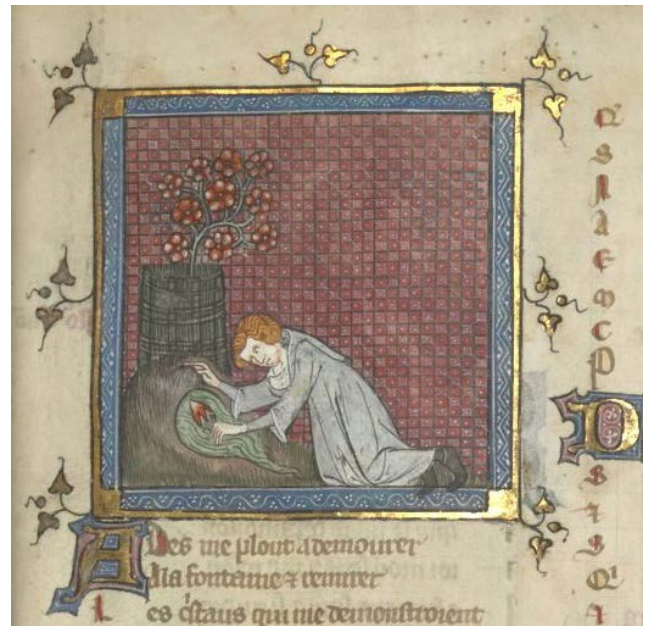 ADes me plout ademourer
A la fontaine ⁊ remirer
L es c'staus qui me demonstroient